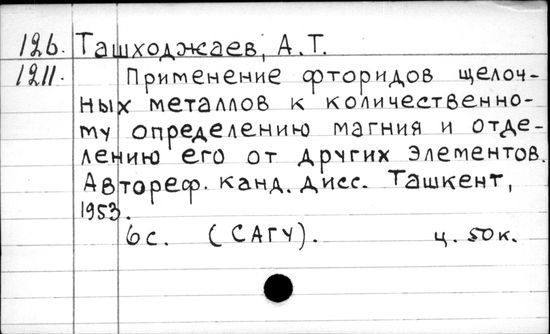 126. Ташходжаев, А.Т.
1211. Применение фторидов щелоч-
ных металлов к количественно-
му определению магния и отде-
лению его от других элементов.
Автореф. канд. дисс. Ташкент,
1953.
6с. (САГУ). ц. 50к.